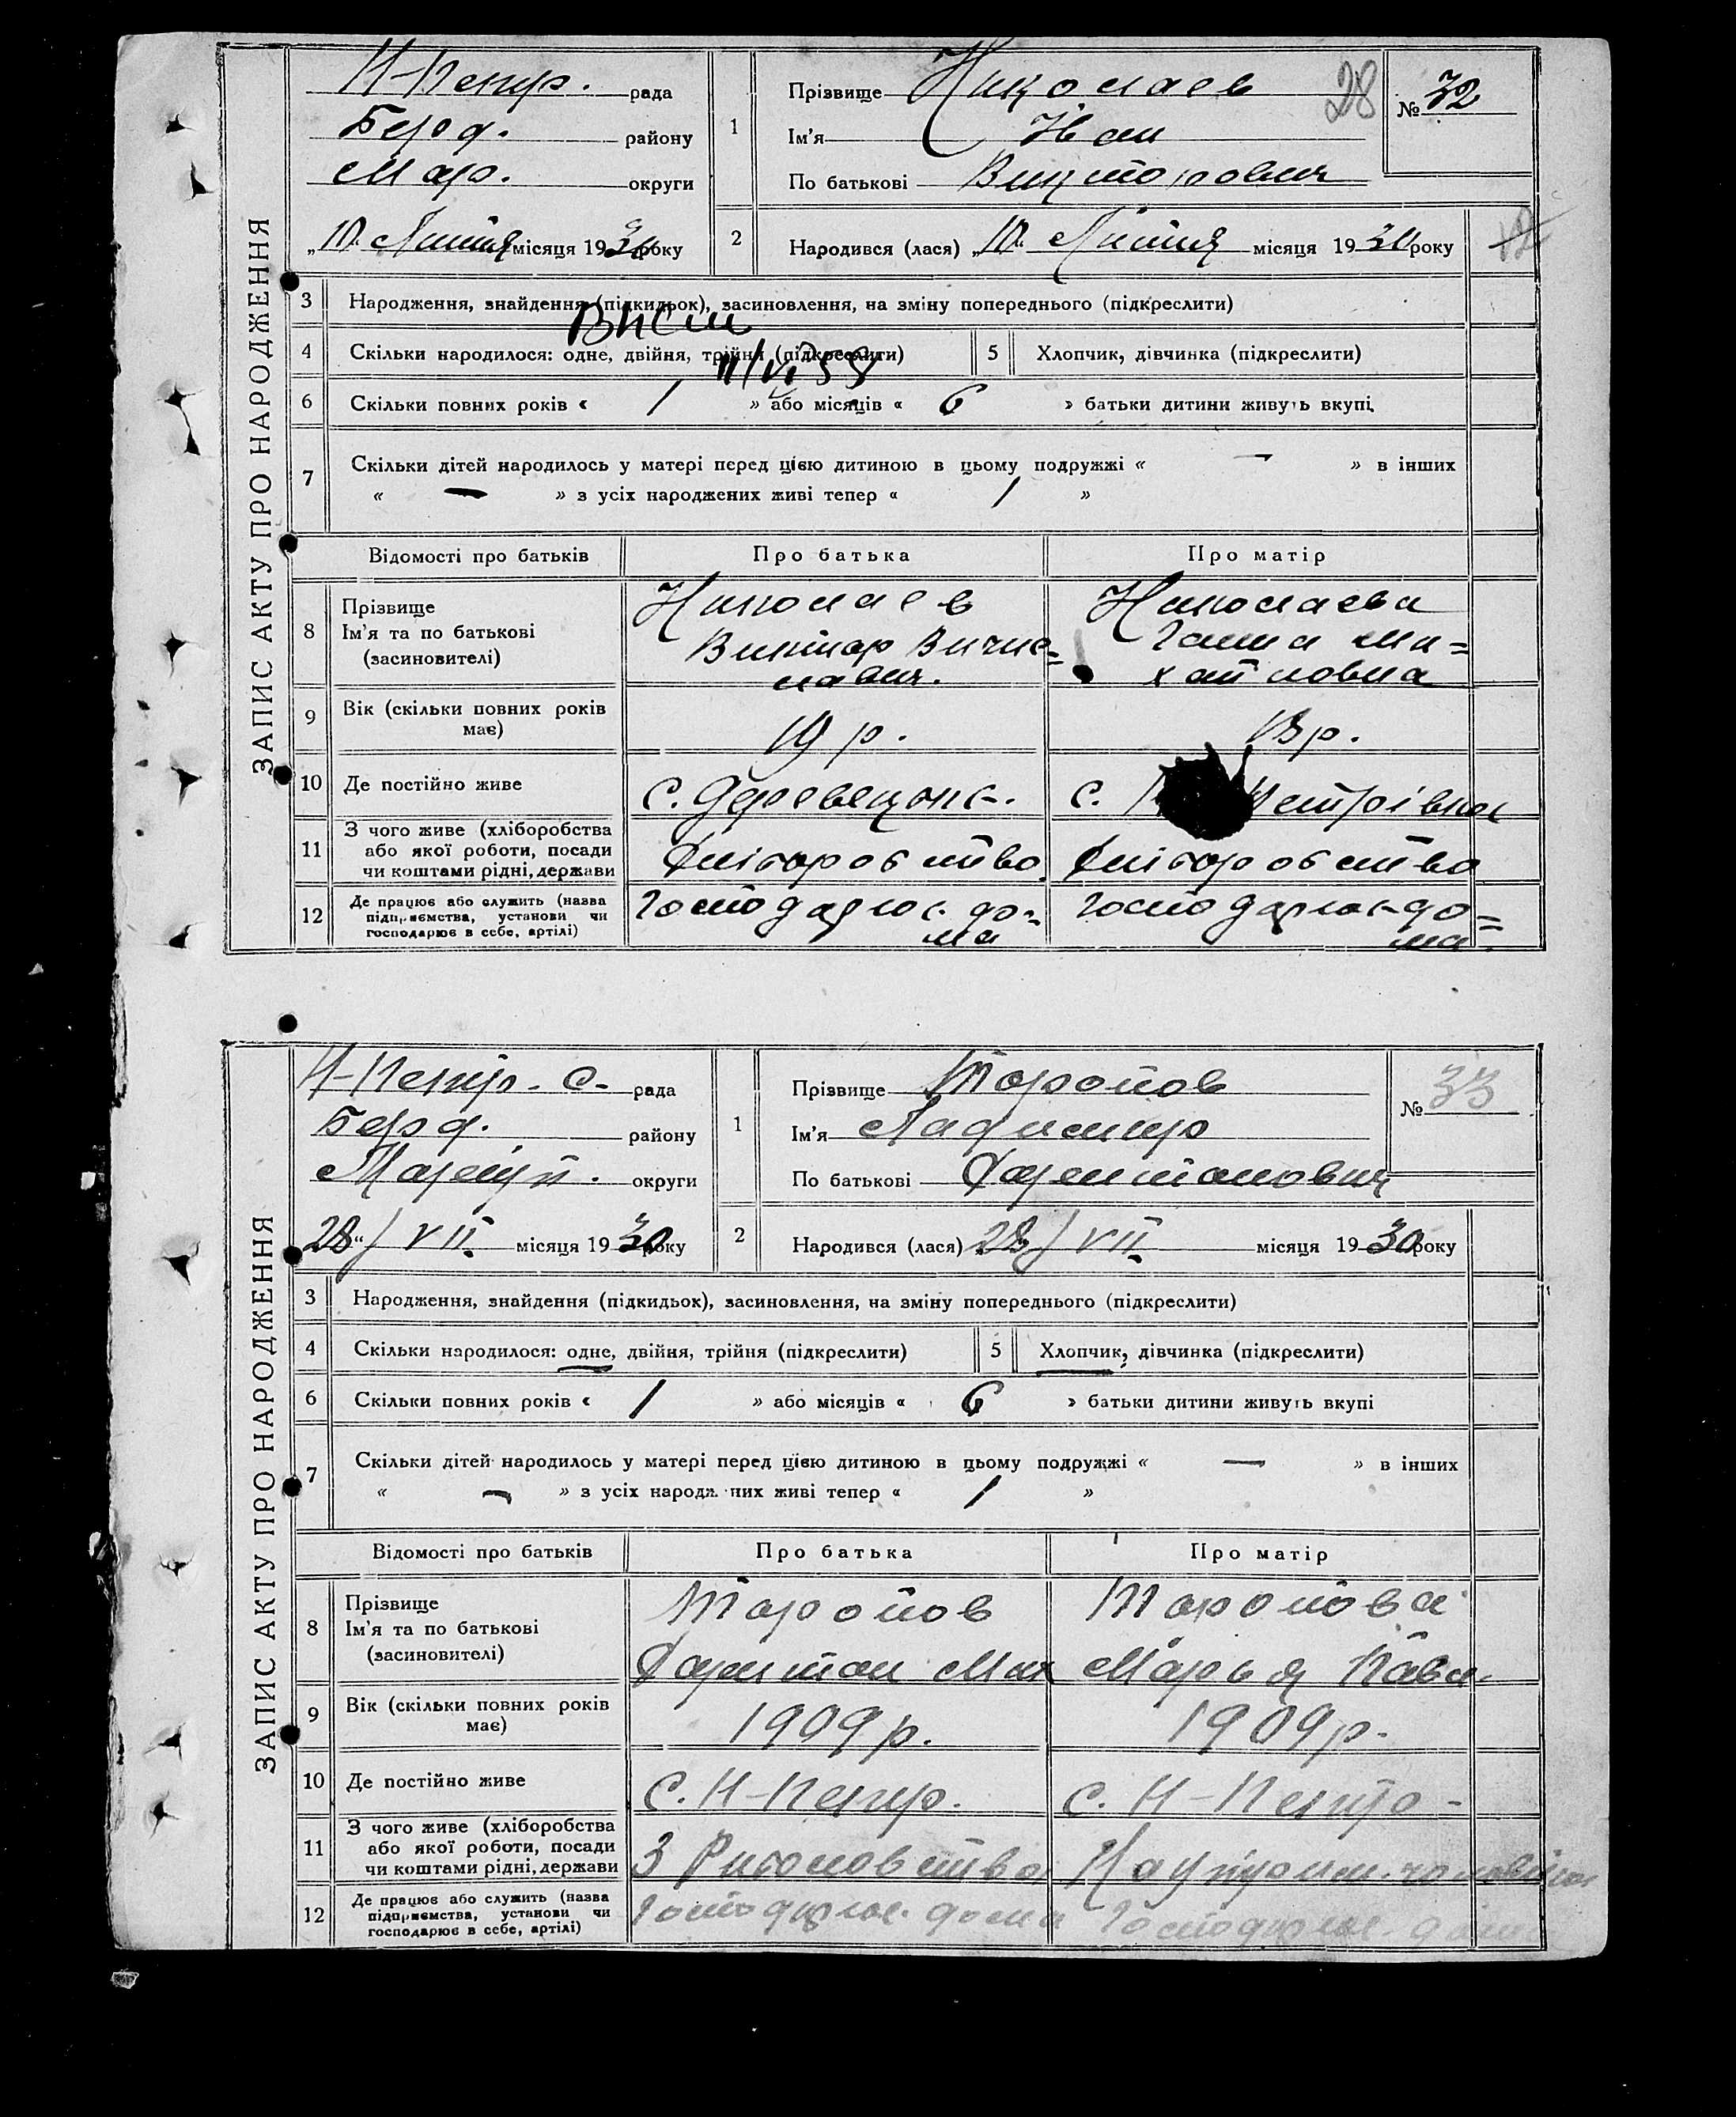 ЗАПИС АКТУ ПРО НАРОДЖЕННЯ
Н-Петр. рада
Берд. району
Мар. округи
1
Прізвище Николаев
28
№ 32
Ім'я Иван
По батькові Викторович
„10. Липня місяця 1930 року
2
Народився (лася) „10. Липня місяця 1930 року
12
3 Народження, знайдення (підкидьок), засиновлення, на зміну попереднього (підкреслити)
4 Скільки народилося: одне, двійня, трійня (підкреслити)
5 Хлопчик, дівчинка (підкреслити)
11/VI 58
6 Скільки повних років « 1 » або місяців « 6 » батьки дитини живуть вкупі
7 Скільки дітей народилось у матері перед цією дитиною в цьому подружжі « — » в інших
« — » з усіх народжених живі тепер « 1 »
Відомості про батьків
Про батька
Про матір
8 Прізвище
Ім'я та по батькові
(засиновителі)
Николаев
Виктор
Николаева
Ганна Ми=
хайловна
9 Вік (скільки повних років
має)
19 р.
18 р.
10 Де постійно живе
с.
с. Петрівка
11 З чого живе (хліборобства
або якої роботи, посади
чи коштами рідні, держави
Хліборобство
Хліборобство
12 Де працює або служить (назва
підприємства, установи чи
господарює в себе, артілі)
Господарює до=
ма
Господарює до=
ма
ЗАПИС АКТУ ПРО НАРОДЖЕННЯ
Н-Петр. С. рада
Берд. району
Маріуп. округи
1
Прізвище Торопов
№ 33
Ім'я
По батькові Харитонович
28/VII місяця 1930 року
2
Народився (лася) 28/VII місяця 1930 року
3 Народження, знайдення (підкидьок), засиновлення, на зміну попереднього (підкреслити)
4 Скільки народилося: одне, двійня, трійня (підкреслити)
5 Хлопчик, дівчинка (підкреслити)
6 Скільки повних років « 1 » або місяців « 6 » батьки дитини живуть вкупі
7 Скільки дітей народилось у матері перед цією дитиною в цьому подружжі « — » в інших
« — » з усіх народжених живі тепер « 1 »
Відомості про батьків
Про батька
Про матір
8 Прізвище
Ім'я та по батькові
(засиновителі)
Торопов
Харитон Мих
Торопова
Марья Павл.
9 Вік (скільки повних років
має)
1909р.
1909р.
10 Де постійно живе
с. Н-Петр.
с. Н-Петро-
11 З чого живе (хліборобства
або якої роботи, посади
чи коштами рідні, держави
З
12 Де працює або служить (назва
підприємства, установи чи
господарює в себе, артілі)
Господарює дома
Господарює дома